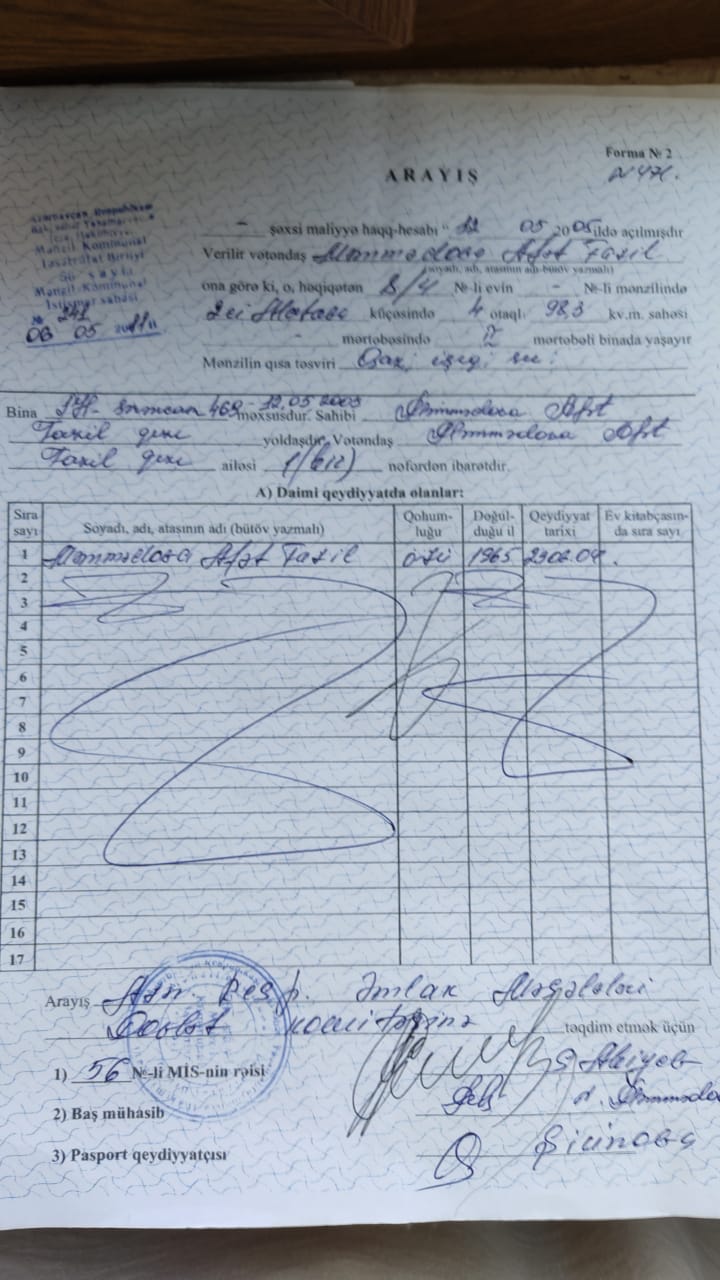 Forma № 2
ARAYIŞ
№ 471.
Mənzil Kommunal
İstismar sahəsi
№ 241
06 05 2011
– şəxsi maliyyə haqq-hesabı " 12 05 2005 ildə açılmışdır
Verilir vətəndaş Məmmədova Afət Fazil
(soyadı, adı, atasının adı-bütöv yazmalı)
ona görə ki, o, həqiqətən 8/4 №-li evin – №-li mənzilində
2ci Alatava küçəsində 4 otaqlı 98,3 kv.m. sahəsi
- mərtəbəsində mərtəbəli binada yaşayır
Mənzilin qısa təsviri Qazı, işığı su.
Bina 469 - 12.05.2005 məxsusdur. Sahibi Məmmədova Afət
Fazil qızı yoldaşdır. Vətəndaş Məmmədova Afət
Fazil qızı ailəsi 1 (bir) nəfərdən ibarətdir.
A) Daimi qeydiyyatda olanlar:
Sıra sayı Soyadı, adı, atasının adı (bütöv yazmalı) Qohumluğu Doğulduğu il Qeydiyyat tarixi Ev kitabçasında sıra sayı
1 Məmmədova Afət Fazil özü 1965 2902.04.
2
3
4
5
6
7
8
9
10
11
12
13
14
15
16
17
Arayış Azn. Resp. Əmlak Məsələləri
Dövlət Komitəsinə təqdim etmək üçün
1) 56 №-li MİS-nin rəisi
2) Baş mühasib
3) Pasport qeydiyyatçısı